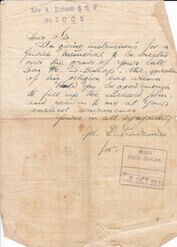 Rev. A. Barnett S C F
No 7 O C S
Dear Sir
In giving instructions for a
Jewish Memorial to be erected
over the grave of your late
Son Mr. S. Bishop, the question
of his religion has arisen
Would you be good enough
to fill up the enclosed form
and return to me at your
earliest convenience
Yours in all sympathy
for
SENIOR
JEWISH CHAPLAIN
OCT 191